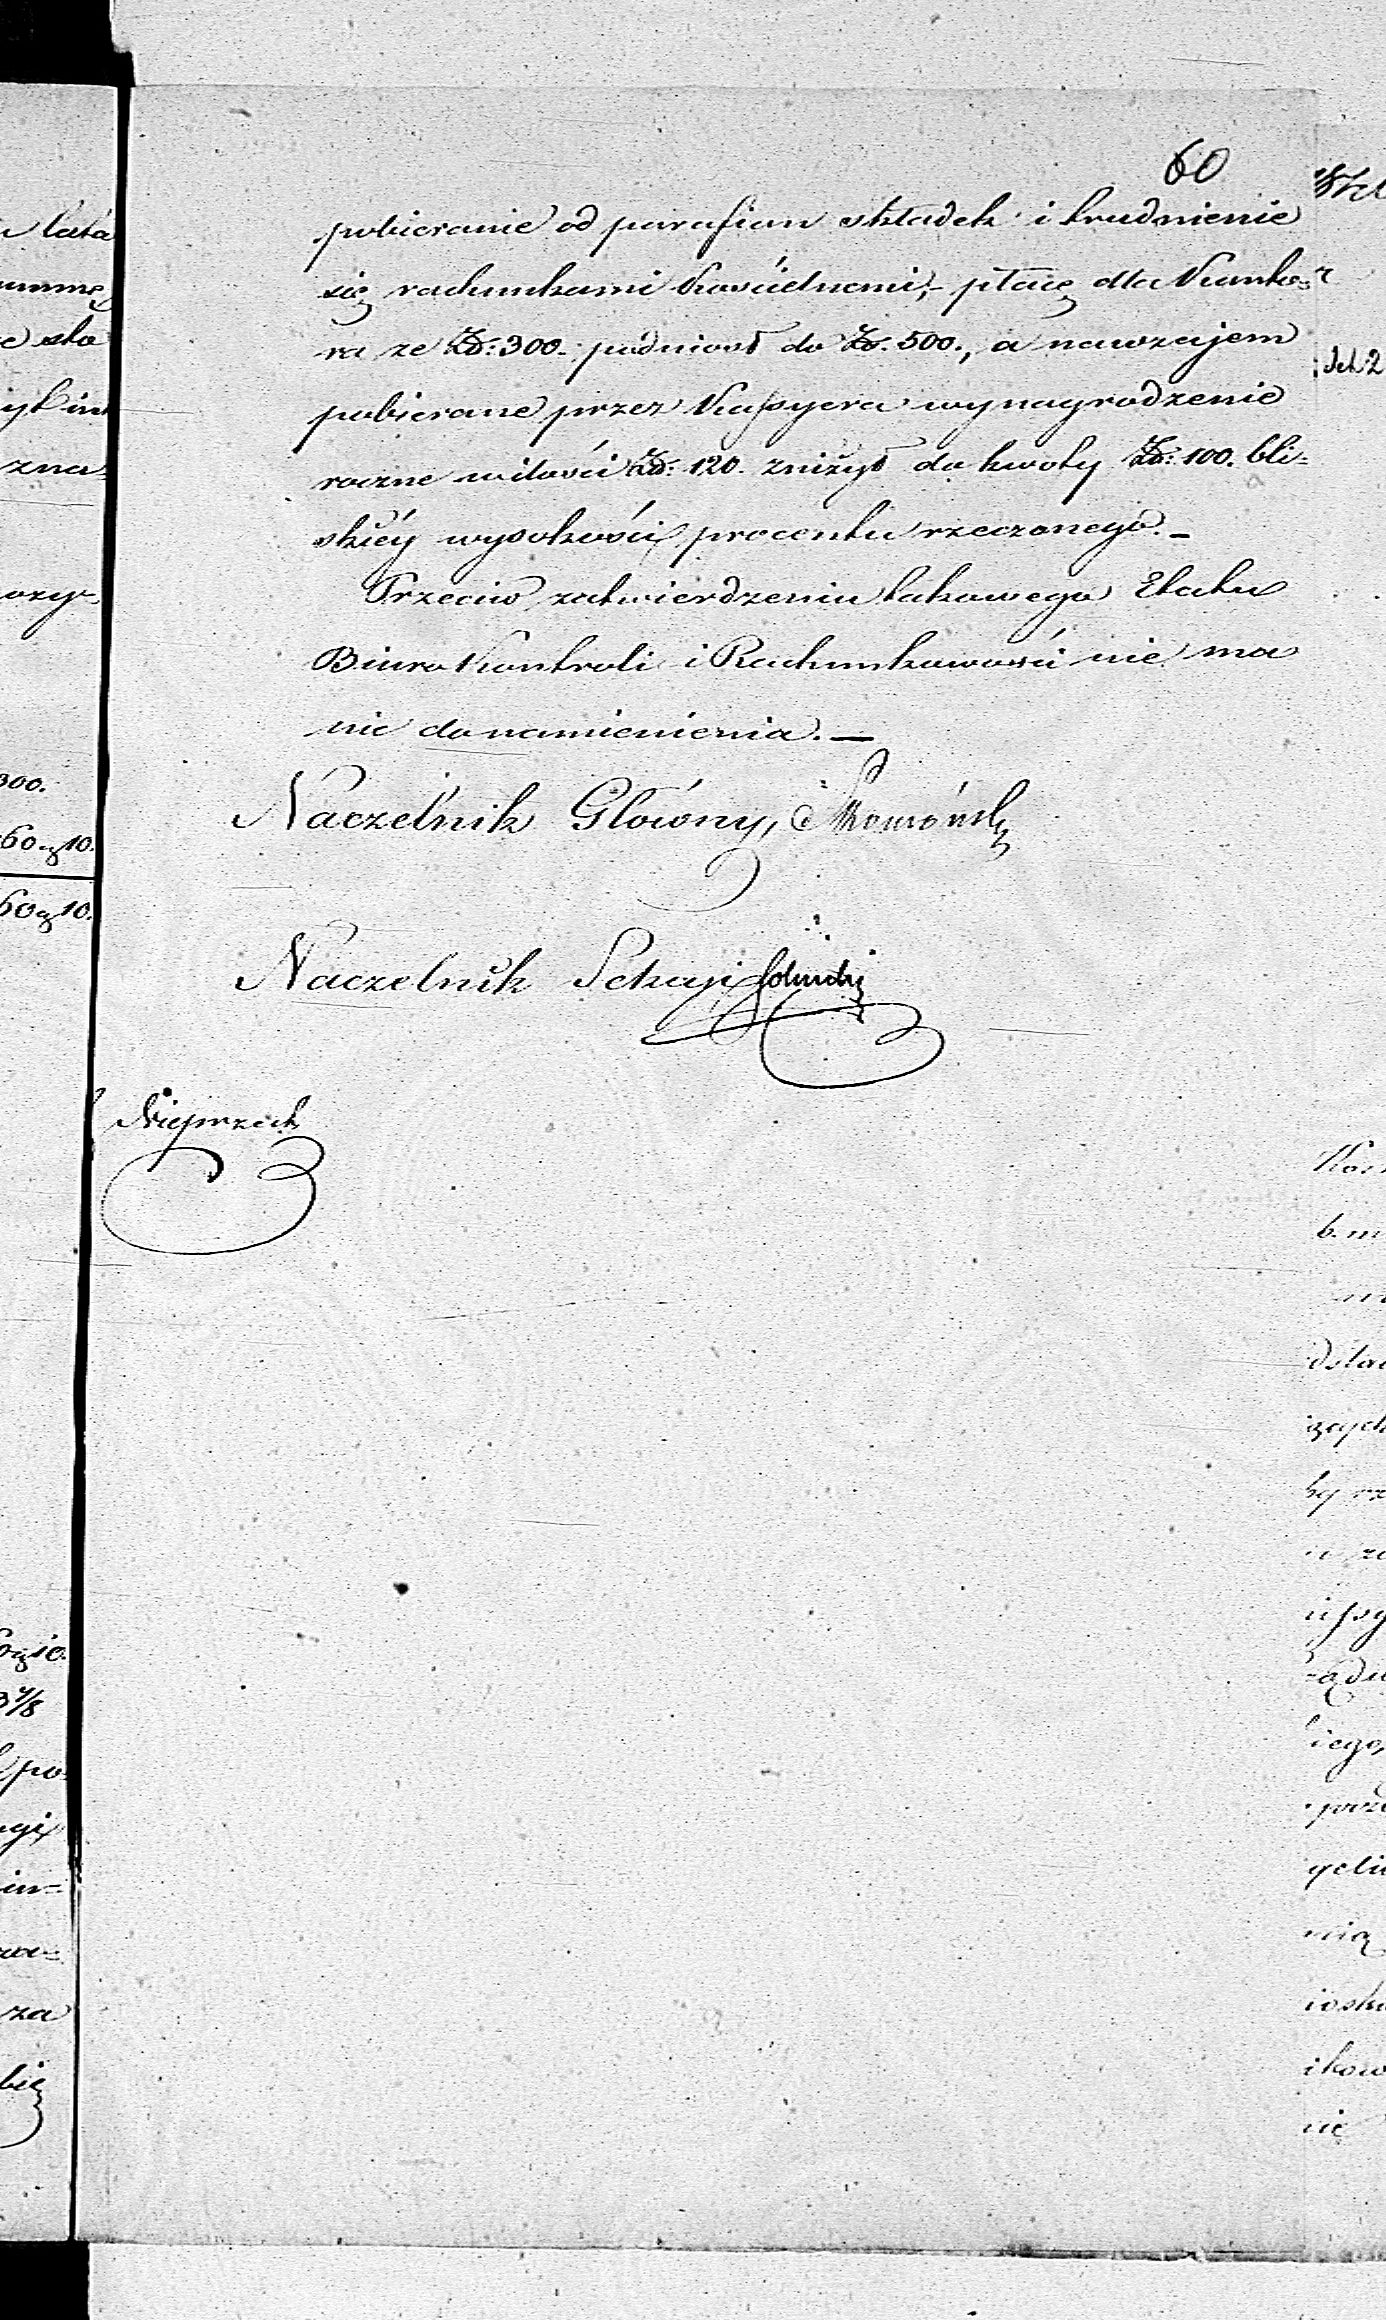 60
pobieranie od parafian składek i trudnienie
się rachunkami Kościelnemi,- płacę dla Kanto=
ra ze Złp: 300. podniosł do Złp. 500., a nawzajem
pobierane przez Kassyera wynagrodzenie
roczne w ilości Złp: 120. zniżył do kwoty Złp: 100. bli=
skiéy wysokości procentu rzeczonego.-
Przeciw zatwierdzeniu takowego Etatu
Biuro Kontroli i Rachunkowości nie ma
nic do namienienia.-
Naczelnik Główny,
Naczelnik Sekcyi